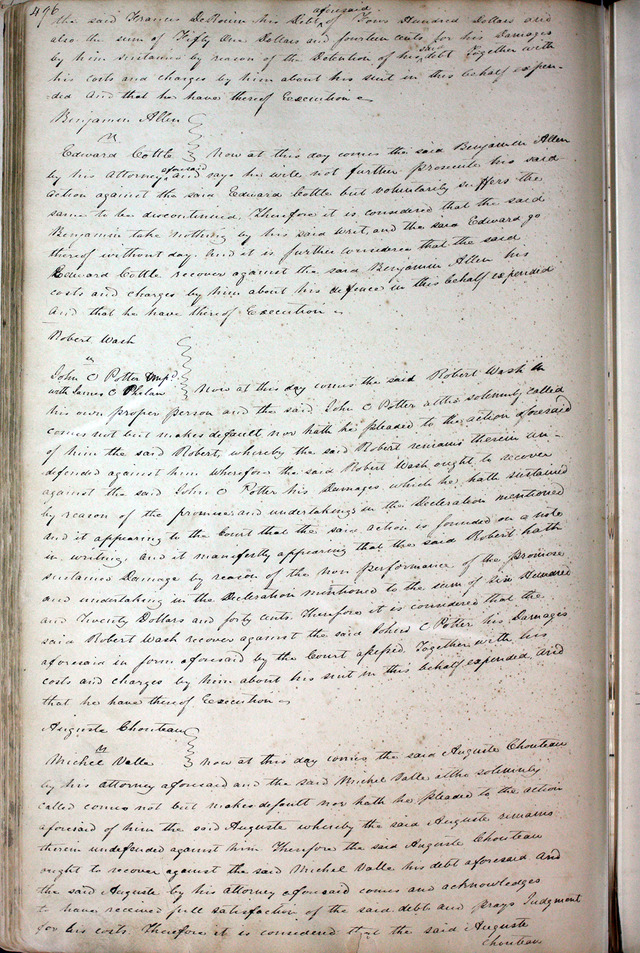 496
the said Francis DeRouin his Debt aforesaid of Four Hundred Dollars and
also the sum of Fifty One Dollars and fourteen cents for his Damages
by him sustained by reason of the Detention of his said debt Together with
his costs and charges by him about his suit in this behalf expen-
ded And that he have thereof Execution
Benjamin Allen
vs
Edward Cottle Now at this day comes the said Benjamin Allen
by his attorney aforesaid and says he will not further prosecute his said
action against the said Edward Cottle but voluntarily suffers the
same to be discontinued Therefore it is considered that the said
Benjamin take nothing by his said writ, and the said Edward go
thereof without day. And it is further considered that the said
Edward Cottle recover against the said Benjamin Allen his
costs and charges by him about his defence in this behalf expended
And that he have thereof Execution
Robert Wash
vs
John C Potter Impd
with James C Phelan Now at this day comes the said Robert Wash in
his own proper person and the said John C Potter altho solemnly called
comes not but makes default nor hath he pleaded to the action aforesaid
of him the said Robert, whereby the said Robert remains therein un-
defended against him Wherefore the said Robert Wash ought to recover
against the said John C Potter his Damages which he hath sustained
by reason of the promises and undertakings in the Declaration mentioned
and it appearing to the Court that the said action is founded on a note
in writing and it manifestly appearing that the said Robert hath
sustained Damage by reason of the non performance of the promise
and undertaking in the Declaration mentioned to the sum of Hundred
and Twenty Dollars and forty cents. Therefore it is considered that the
said Robert Wash recover against the said John C Potter his Damages
aforesaid in form aforesaid by the Court assessed, Together with his
costs and charges by him about his suit in this behalf expended, and
that he have thereof Execution
Auguste Chouteau
vs
Michel Valle Now at this day comes the said Auguste Chouteau
by his attorney aforesaid and the said Michel Valle altho solemnly
called comes not but makes default nor hath he pleaded to the action
aforesaid of him the said Auguste whereby the said Auguste remains
therein undefended against him Therefore the said Auguste Chouteau
ought to recover against the said Michel Valle his debt aforesaid And
the said Auguste by his attorney aforesaid comes and acknowledges
to have received full satisfaction of the said debt and prays Judgment
for his costs. Therefore it is considered that the said Auguste
Chouteau